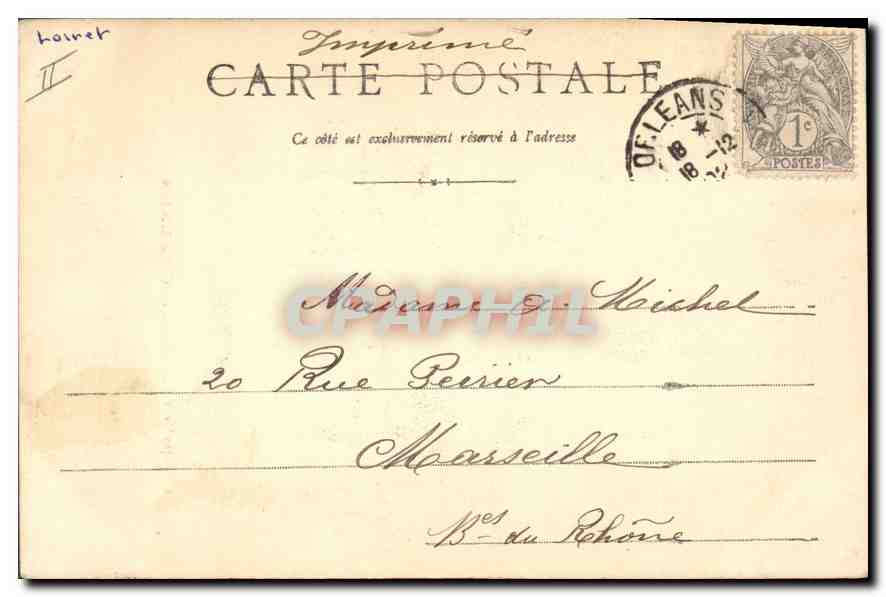 Loiret
II
Imprimé
CARTE POSTALE
Ce côté est exclusivement réservé à l'adresse
ORLEANS
18 -12
18
1c
POSTES
Madame A. Michel
CPAPHIL
20 Rue Perrier
Marseille
Bes du Rhône